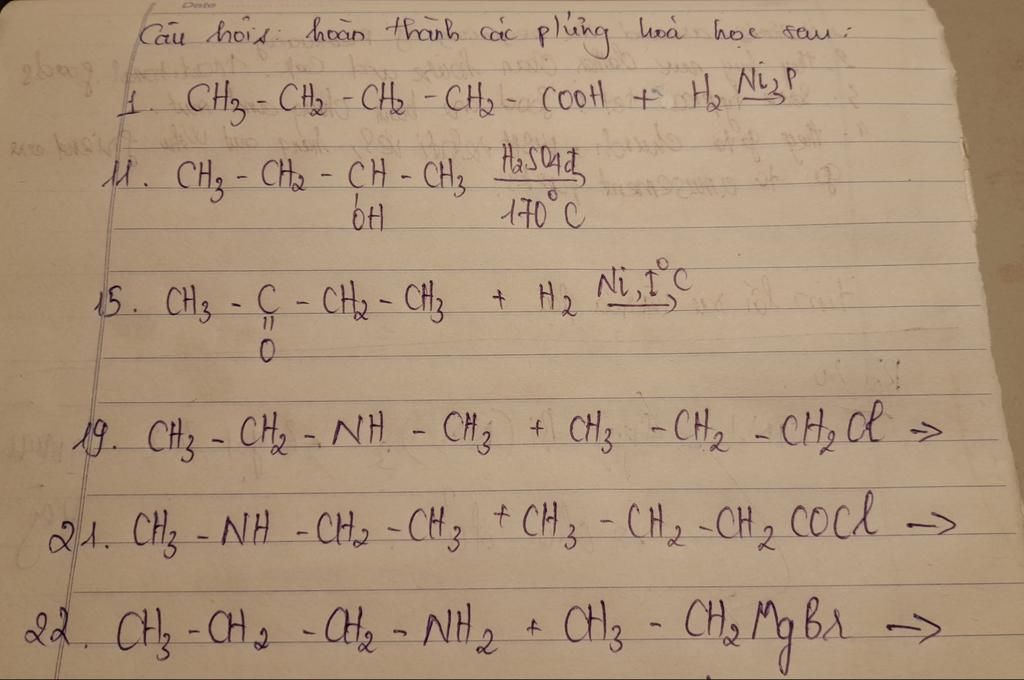 Date
Câu hỏi: hoàn thành các p/ứng hoá học sau:
1. CH3 - CH2 - CH2 - CH2 - COOH + H2 Ni,P →
11. CH3 - CH2 - CH - CH3 H2SO4đ →
OH 170°C
15. CH3 - C - CH2 - CH3 + H2 Ni, t°C →
O
19. CH3 - CH2 - NH - CH3 + CH3 - CH2 - CH2Cl →
21. CH3 - NH - CH2 - CH3 + CH3 - CH2 - CH2COCl →
22. CH3 - CH2 - CH2 - NH2 + CH3 - CH2MgBr →